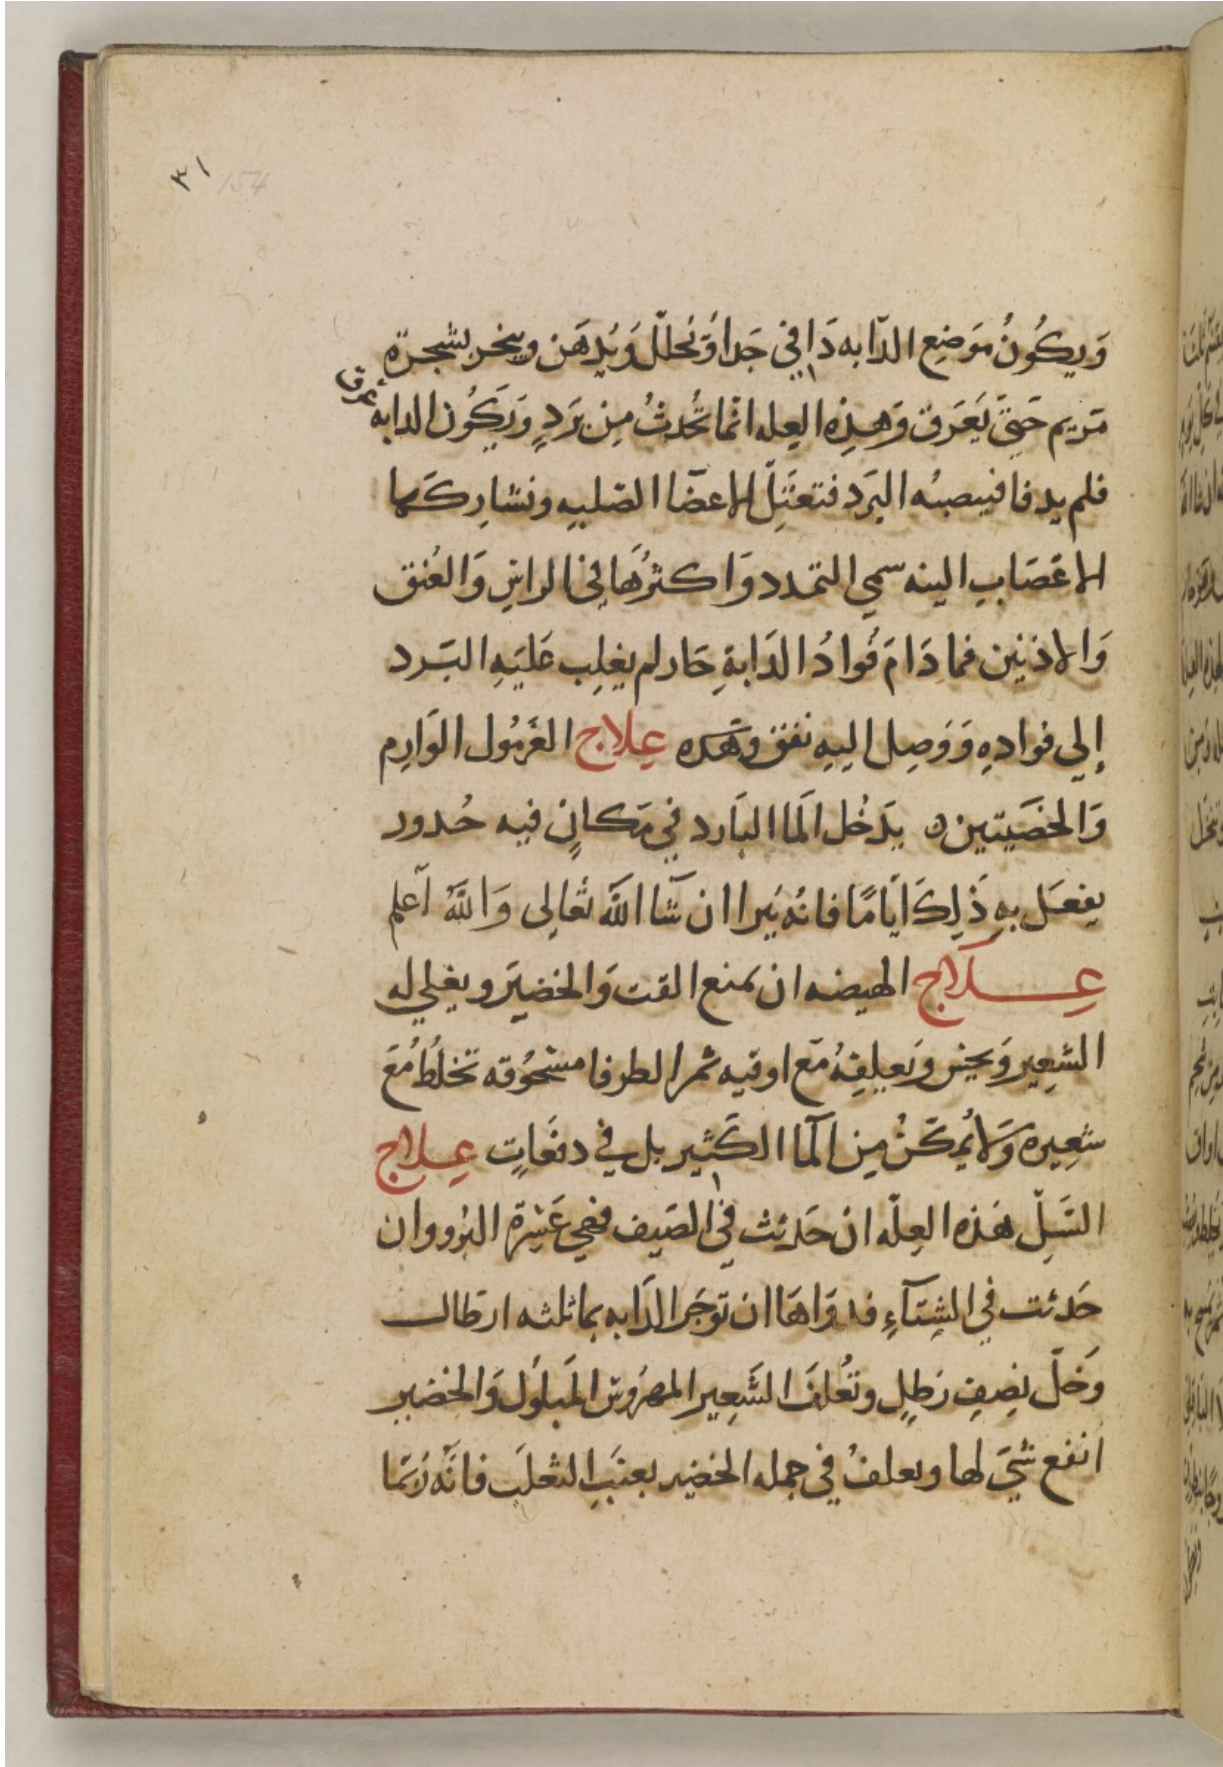 ٣١ 154
وَيكُونُ مَوَضِع الدّابه دَافي جَدا وَتحلّل وَيُدهَن ويبخر بشجرة
مَريم حَتىَّ يَعَرق وَهذِه العِله انما تحُدثُ مِن بَردٍ وَيَكُون الدابه عرقا
فلم يدفا فيصبه البَرد فتعتَلّ الاعضَا الصّلبه ونشاركها
الاعصَابِ الينه سمي التمدد وَاكثرُهَا في الراسِ وَالعُنق
وَالاذنين فما دَامَ فُوادُ الدَابةِ حَار لم يغلِب عَليَهِ البَرد
إلى فوادهِ وَوَصِل اليهِ نفق وهَذه عِلاج الغرمُول الوَارِم
وَالخصَيتين ه يدَخُل الَما البَارد في مَكانٍ فيه حُدور
يفعَل بهِ ذَلِكَ ايّامًا فانهُ يَبرا ان شَآ اللَّه تَعَالى وَاللَّهُ آعلم
عِــلَاج الهيضه ان يمنع القت وَالخضيَر ويغلي له
الشعِير وَيحبس وَتعليفهُ مَع اوقيه ثمر الطرفا مسَحُوقه تخلَطُ مَعَ
شعِيره وَلا يُمكَّنُ مِن الَما الكَثير بل في دفعَاتٍ عِــلاج
السَّلِّ هَذه العِلّه ان حَدثت في الصَيف فهي عَسِرة البُرو وان
حَدثت في الشِتَآءِ فدوَاهَا ان توجَر الدَابه بما ثلثه ارطال
وَخلّ نِصِفِ رَطِلٍ وتُعلفَ الشَعِير المهرُوس المَبلوُل وَالخضير
انفع شيَ لها ويعلفُ في جمله الخضير بعنَبِ الثعلَب فانَّه رُبّما